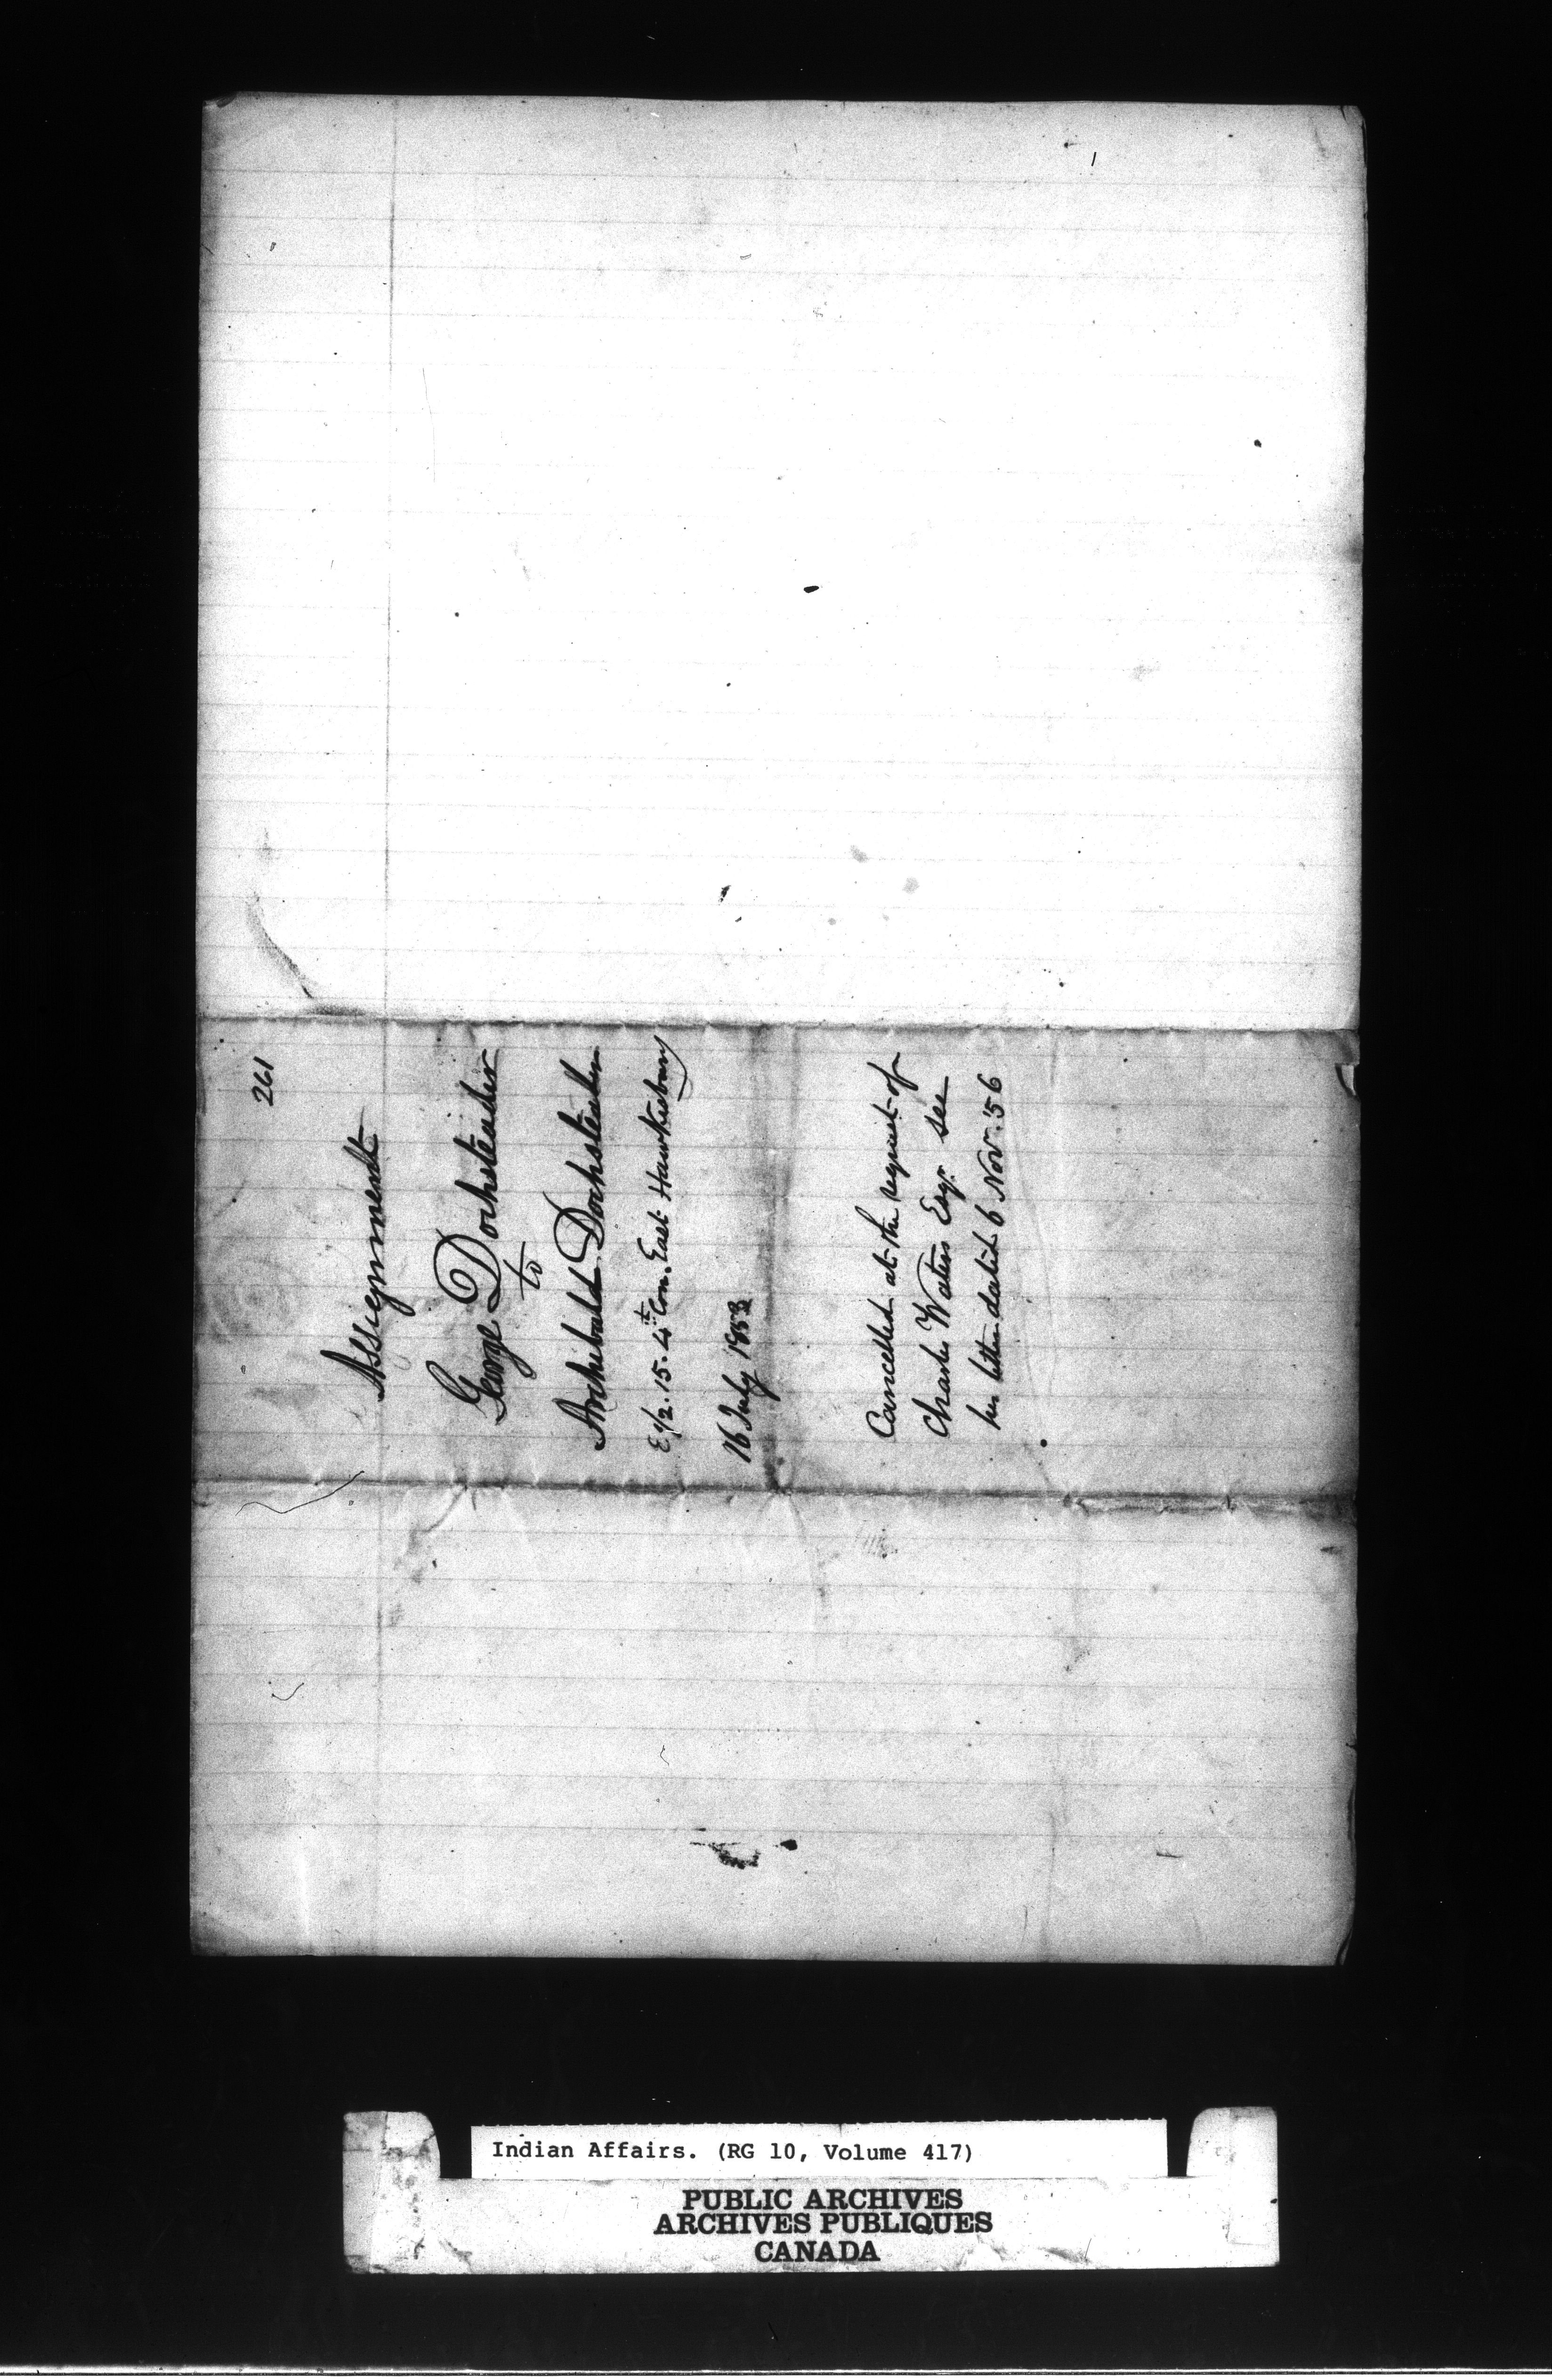 261
Assignment
George Dochsteader
to
Archibald Dochsteader
E 1/2. 15. 4th Con. East Hawkesbury
16 July 1853
Cancelled at the request of
Charles Waters Esqr. see
his letter dated 6 Nov. '56
Indian Affairs. (RG 10, Volume 417)
PUBLIC ARCHIVES
ARCHIVES PUBLIQUES
CANADA